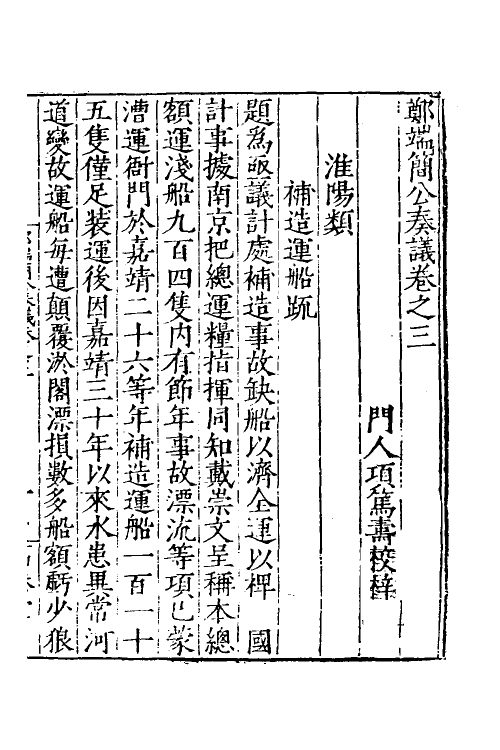 鄭端簡公奏議卷之三
門人項篤壽校梓
淮陽類
補造運船疏
題為亟議計處補造事故缺船以濟全運以裨　國
計事據南京把總運糧指揮同知戴崇文呈稱本總
額運淺船九百四隻內有節年事故漂流等項已蒙
漕運衙門於嘉靖二十六等年補造運船一百一十
五隻僅足裝運後因嘉靖三十年以來水患異常河
道變故運船每遭顛覆淤閣漂損數多船額虧少狼